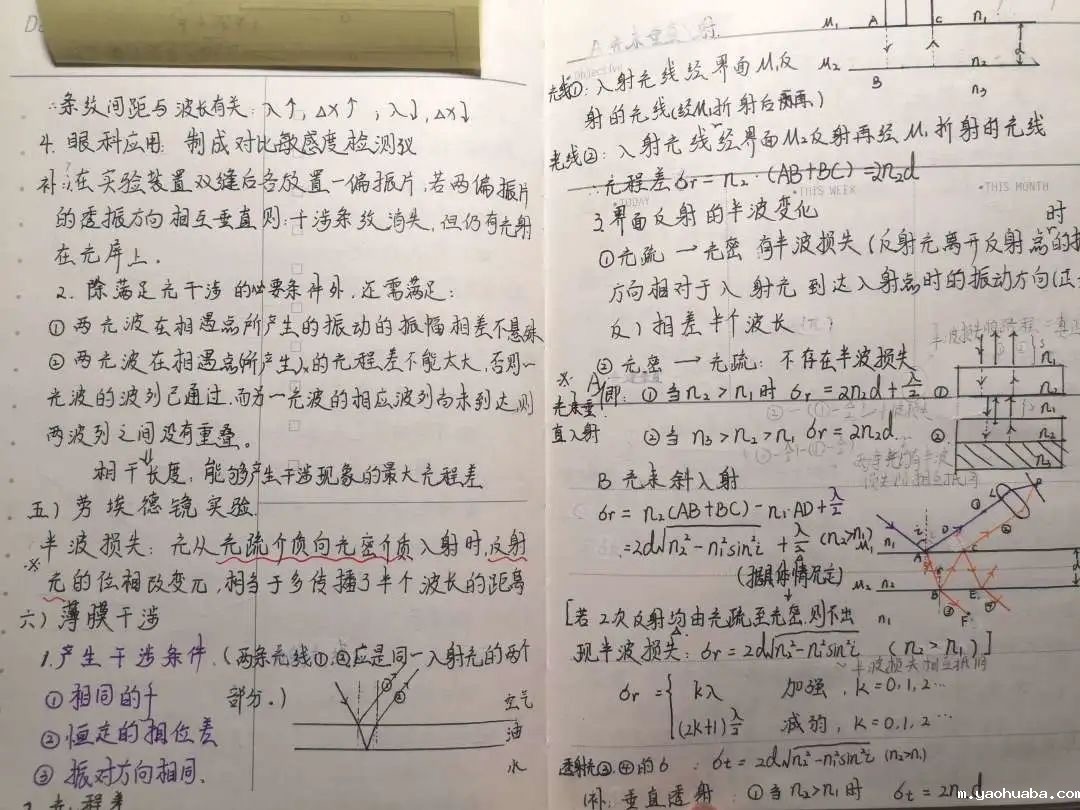 ∴条纹间距与波长有关: λ↑, Δx↑; λ↓, Δx↓
4. 眼科应用: 制成对比敏感度检测仪
补: 1.在实验装置双缝后各放置一偏振片,若两偏振片
的透振方向相互垂直则:干涉条纹消失,但仍有光射
在光屏上。
2. 除满足光干涉的必要条件外,还需满足:
① 两光波在相遇点所产生的振动的振幅相差不悬殊
② 两光波在相遇点所产生的光程差不能太大,否则一
光波的波列已通过,而另一光波的相应波列尚未到达,则
两波列之间没有重叠。
相干长度: 能够产生干涉现象的最大光程差
五) 劳埃德镜实验
※ 半波损失: 光从光疏介质向光密介质入射时,反射
光的位相改变π,相当于多传播了半个波长的距离
六) 薄膜干涉
1.产生干涉条件. (两条光线①,②应是同一入射光的两个
① 相同的f 部分。)
② 恒定的相位差
③ 振动方向相同.
① ②
空气
油
水
2.光程差
A 光束垂直入射.
Objective
M₁ A C n₁
M₂ B n₂ d
n₃
光线①: 入射光线经界面M₁反
射的光线
光线②: 入射光线经界面M₂反射再经M₁折射的光线
∴光程差δr = n₂·(AB+BC) = 2n₂d
•TODAY •THIS WEEK •THIS MONTH
3.界面反射的半波变化
①光疏 → 光密 有半波损失 (反射光离开反射点时的振
方向相对于入射光到达入射点时的振动方向(正
反)相差半个波长
② 光密 → 光疏: 不存在半波损失
※ A 即: ① 当n₂>n₁时 δr = 2n₂d + λ/2 ①
光束垂
直入射 ② 当n₃>n₂>n₁ δr = 2n₂d ②
n₁
n₂
n₁
n₂
n₃
B 光束斜入射
δr = n₂(AB+BC) − n₁·AD + λ/2
= 2d√n₂²−n₁²sin²i + λ/2 (n₂>n₁)
(据具体情况定)
n₁ i A D C L P
M₂ n₂ B E d
n₁ F
[若2次反射均由光疏至光密,则不出
现半波损失: δr = 2d√n₂²−n₁²sin²i (n₂>n₁)]
δr = { kλ 加强, k=0,1,2…
(2k+1)λ/2 减弱, k=0,1,2…
透射光③,④的δ: δt = 2d√n₂²−n₁²sin²i (n₂>n₁)
(补: 垂直透射: ①当n₂>n₁时 δt = 2n₂d
m.yaohuaba.com